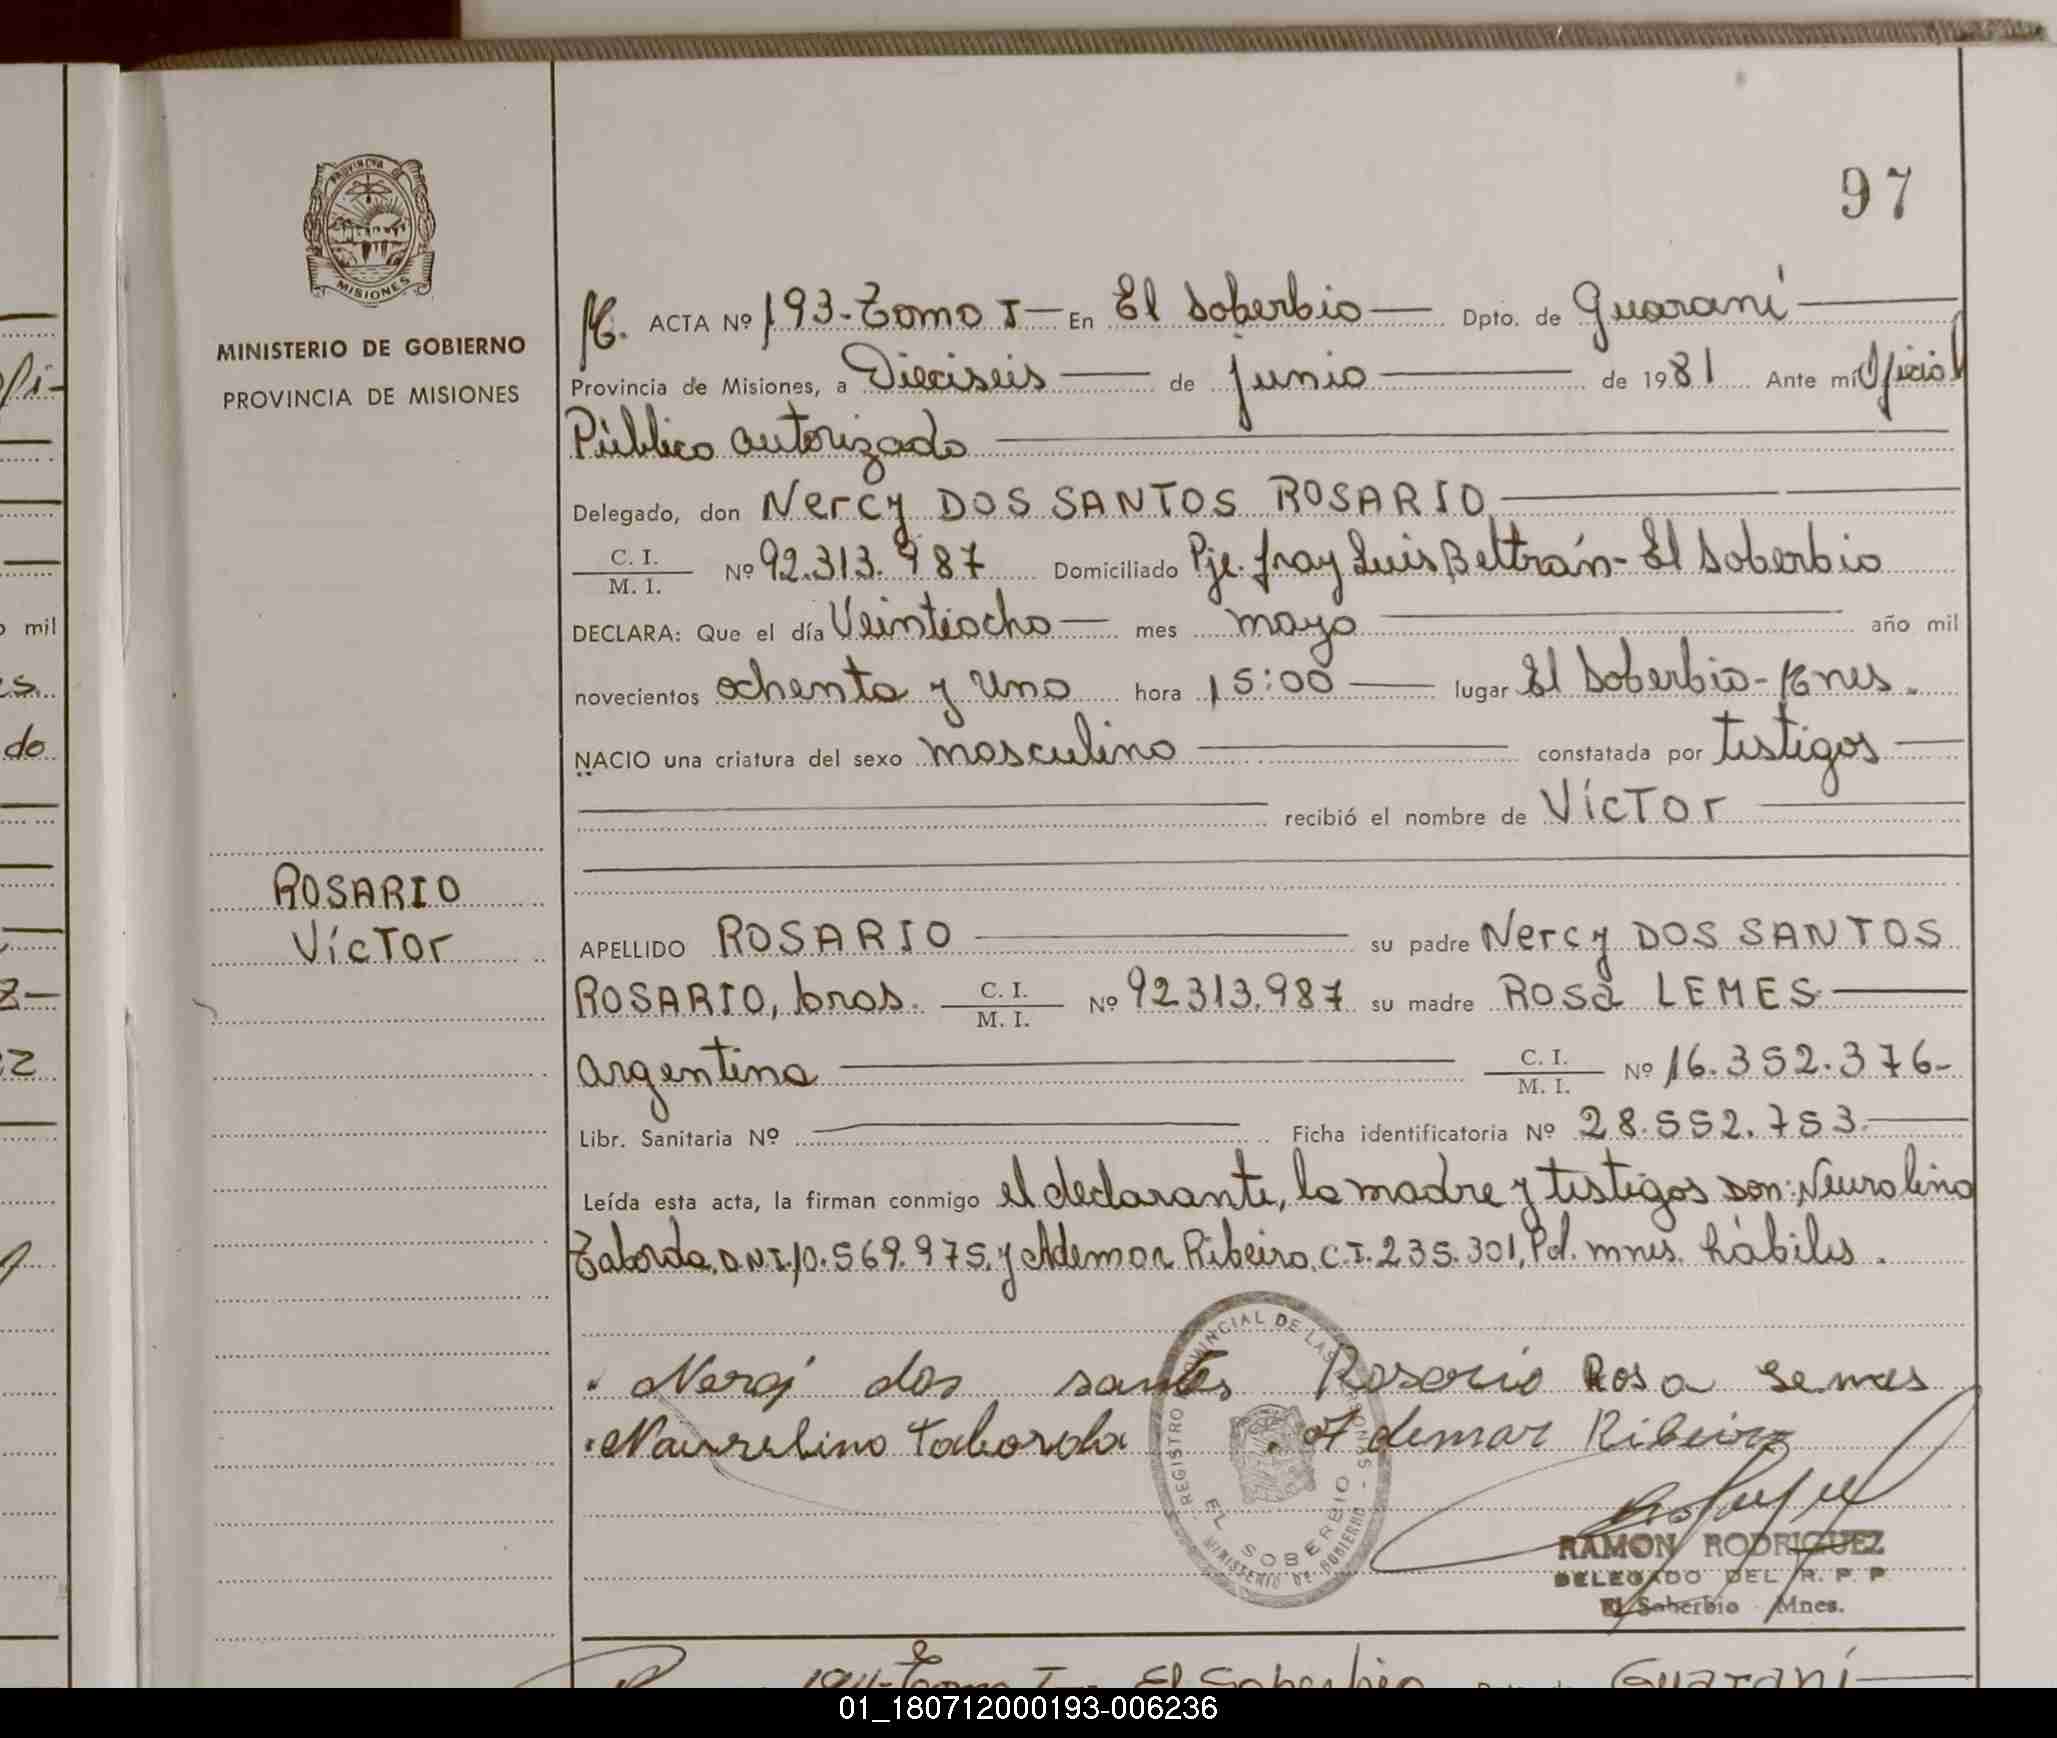 97
PROVINCIA DE
MISIONES
MINISTERIO DE GOBIERNO
PROVINCIA DE MISIONES
ACTA Nº 193-Tomo I- En El Soberbio Dpto. de Guaraní
Provincia de Misiones, a Dieciseis de junio de 1981 Ante mi Oficial
Público autorizado
Delegado, don Nercy DOS SANTOS ROSARIO
C. I. / M. I. Nº 92.313.987 Domiciliado Pje. fray Luis Beltrán- El Soberbio
DECLARA: Que el día Veintiocho mes mayo año mil
novecientos ochenta y uno hora 15:00 lugar El Soberbio- Mnes.
NACIO una criatura del sexo masculino constatada por testigos
recibió el nombre de VícTor
ROSARIO
VícTor
APELLIDO ROSARIO su padre Nercy DOS SANTOS
ROSARIO, bras. C. I. / M. I. Nº 92313.987 su madre ROSa LEMES
argentina C. I. / M. I. Nº 16.352.376-
Libr. Sanitaria Nº Ficha identificatoria Nº 28.552.753.
Leída esta acta, la firman conmigo el declarante, la madre y testigos Don: Neurolino
Taborda, D.N.I. 10.569.975. y Ademar Ribeiro, C.I. 235.301, Pol. mnes. hábiles.
Nercj dos santos Rosario Rosa Lemes
Naurelino Taborda Ademar Ribeiro
REGISTRO PROVINCIAL DE LAS PERSONAS
EL SOBERBIO
MINISTERIO DE GOBIERNO
RAMON RODRIGUEZ
DELEGADO DEL R. P. P
El Soberbio Mnes.
194-Tomo I- El Soberbio Guaraní
01_180712000193-006236